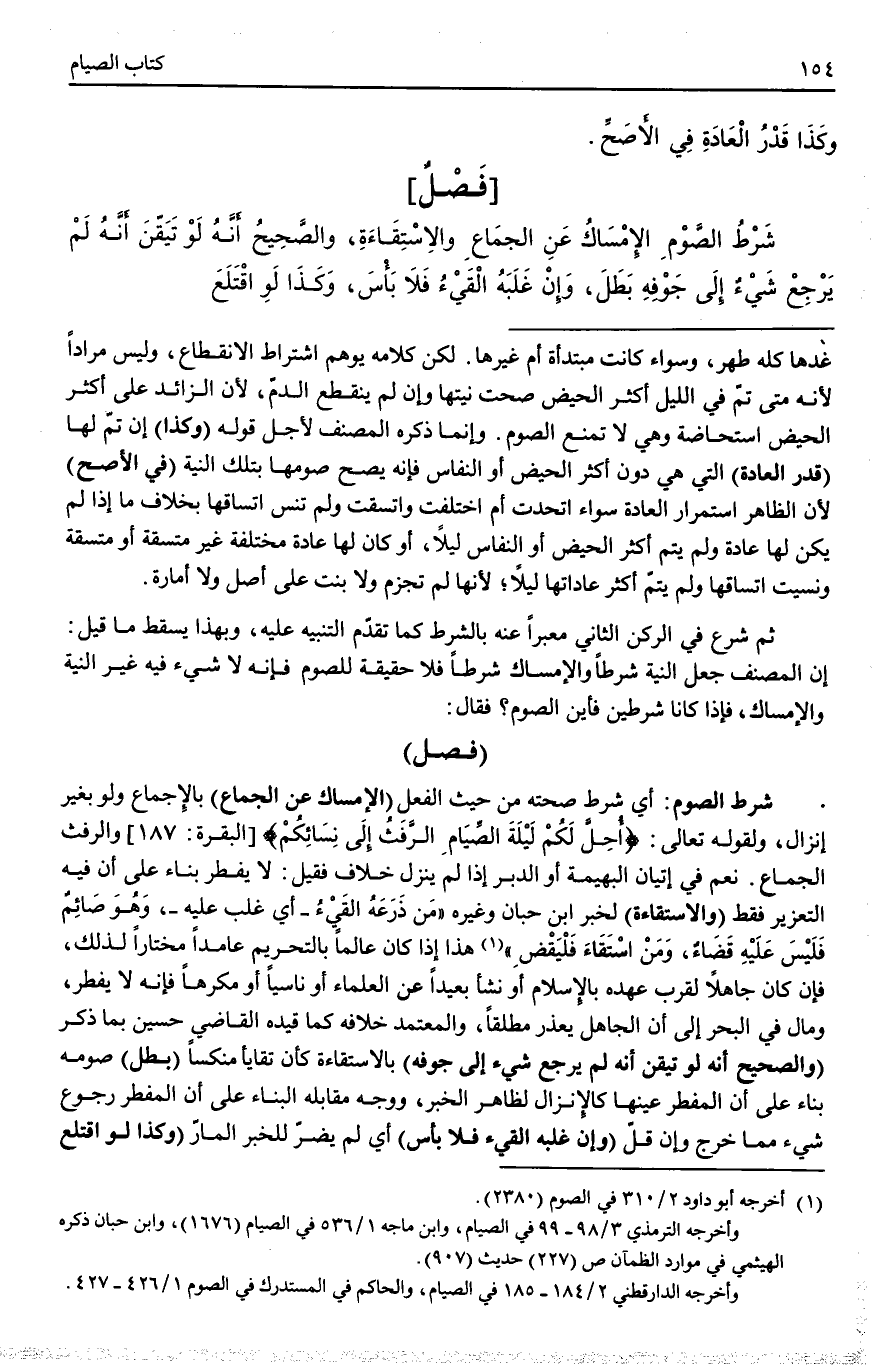 ١٥٤ كتاب الصيام
وكَذَا قَدْرُ الْعَادَةِ فِي الأَصَحِّ.
[فَصْلٌ]
شَرْطُ الصَّوْمِ الإِمْسَاكُ عَنِ الجمَاعِ والاِسْتِقَاءَةِ، والصَّحِيحُ أَنَّهُ لَوْ تَيَقَّنَ أَنَّهُ لَمْ
يَرْجِعْ شَيْءٌ إِلَى جَوْفِهِ بَطَلَ، وَإِنْ غَلَبَهُ الْقَيْءُ فَلَا بَأْسَ، وَكَذَا لَوِ اقْتَلَعَ
غدها كله طهر، وسواء كانت مبتدأة أم غيرها. لكن كلامه يوهم اشتراط الانقطاع، وليس مراداً
لأنه متى تمّ في الليل أكثر الحيض صحت نيتها وإن لم ينقطع الدمّ، لأن الزائد على أكثر
الحيض استحاضة وهي لا تمنع الصوم. وإنما ذكره المصنف لأجل قوله (وكذا) إن تمّ لها
(قدر العادة) التي هي دون أكثر الحيض أو النفاس فإنه يصح صومها بتلك النية (في الأصح)
لأن الظاهر استمرار العادة سواء اتحدت أم اختلفت واتسقت ولم تنس اتساقها بخلاف ما إذا لم
يكن لها عادة ولم يتم أكثر الحيض أو النفاس ليلًا، أو كان لها عادة مختلفة غير متسقة أو متسقة
ونسيت اتساقها ولم يتمّ أكثر عاداتها ليلًا؛ لأنها لم تجزم ولا بنت على أصل ولا أمارة.
ثم شرع في الركن الثاني معبراً عنه بالشرط كما تقدّم التنبيه عليه، وبهذا يسقط ما قيل:
إن المصنف جعل النية شرطاً والإمساك شرطاً فلا حقيقة للصوم فإنه لا شيء فيه غير النية
والإمساك، فإذا كانا شرطين فأين الصوم؟ فقال:
(فصل)
شرط الصوم: أي شرط صحته من حيث الفعل (الإمساك عن الجماع) بالإجماع ولو بغير
إنزال، ولقوله تعالى: ﴿أُحِلَّ لَكُمْ لَيْلَةَ الصِّيَامِ الرَّفَثُ إِلَى نِسَائِكُمْ﴾ [البقرة: ١٨٧] والرفث
الجماع. نعم في إتيان البهيمة أو الدبر إذا لم ينزل خلاف فقيل: لا يفطر بناء على أن فيه
التعزير فقط (والاستقاءة) لخبر ابن حبان وغيره «مَن ذَرَعَهُ القَيْءُ - أي غلب عليه -، وَهُوَ صَائِمٌ
فَلَيْسَ عَلَيْهِ قَضَاءٌ، وَمَنْ اسْتَقَاءَ فَلْيَقْضِ»(١) هذا إذا كان عالماً بالتحريم عامداً مختاراً لذلك،
فإن كان جاهلًا لقرب عهده بالإسلام أو نشأ بعيداً عن العلماء أو ناسياً أو مكرهاً فإنه لا يفطر،
ومال في البحر إلى أن الجاهل يعذر مطلقاً، والمعتمد خلافه كما قيده القاضي حسين بما ذكر
(والصحيح أنه لو تيقن أنه لم يرجع شيء إلى جوفه) بالاستقاءة كأن تقايأ منكساً (بطل) صومه
بناء على أن المفطر عينها كالإنزال لظاهر الخبر، ووجه مقابله البناء على أن المفطر رجوع
شيء مما خرج وإن قلّ (وإن غلبه القيء فلا بأس) أي لم يضرّ للخبر المارّ (وكذا لو اقتلع
(١) أخرجه أبو داود ٣١٠/٢ في الصوم (٢٣٨٠).
وأخرجه الترمذي ٩٨/٣ - ٩٩ في الصيام، وابن ماجه ٥٣٦/١ في الصيام (١٦٧٦)، وابن حبان ذكره
الهيثمي في موارد الظمآن ص (٢٢٧) حديث (٩٠٧).
وأخرجه الدارقطني ١٨٤/٢ - ١٨٥ في الصيام، والحاكم في المستدرك في الصوم ٤٢٦/١ - ٤٢٧.